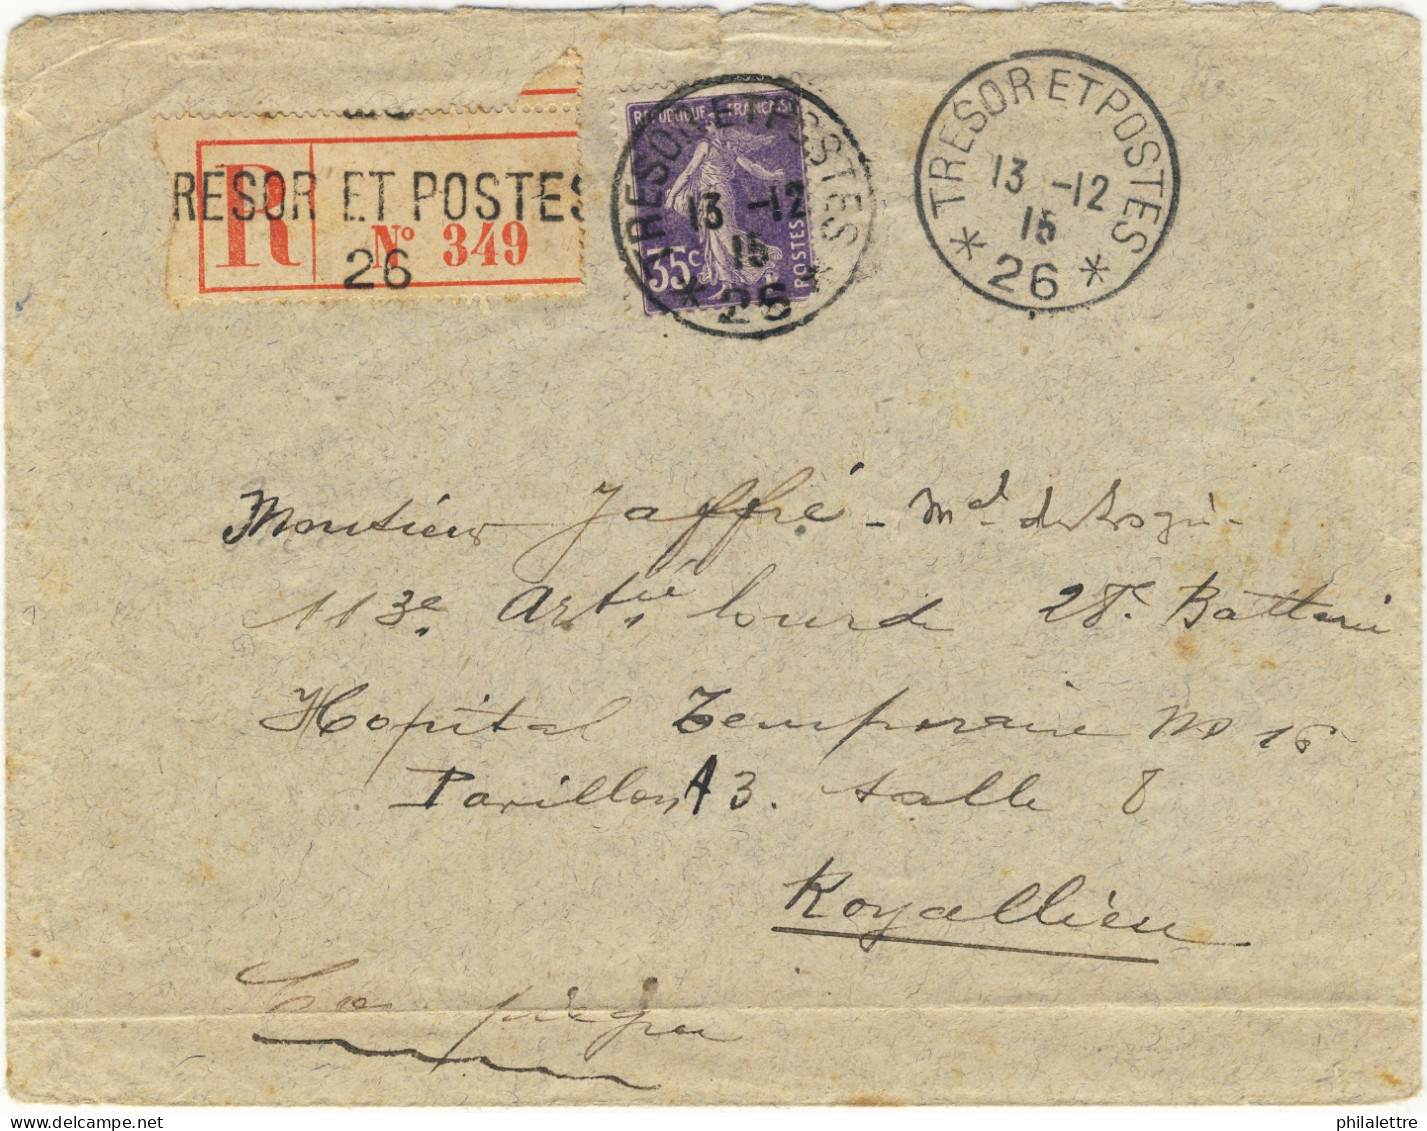 R
TRESOR ET POSTES
Nº 349
26
REPUBLIQUE FRANCAISE
35c
POSTES
TRESOR ET POSTES
13 -12
15
* 26 *
TRESOR ET POSTES
13 -12
15
* 26 *
Monsieur Jaffré - Mal des Logis -
113e Artie lourde 28e Batterie
Hopital Temporaire No 16
Pavillon A 3. Salle 8
Royallieu
Compiègne
philalettre